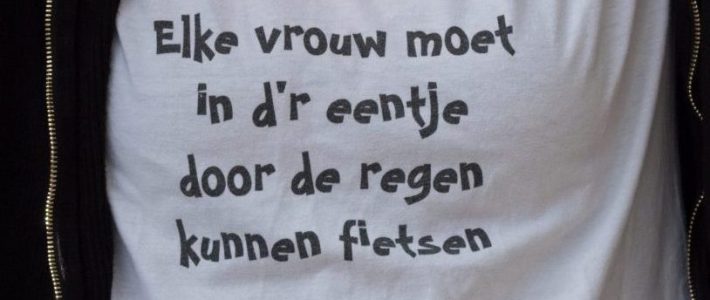 Elke vrouw moet
in d'r eentje
door de regen
kunnen fietsen